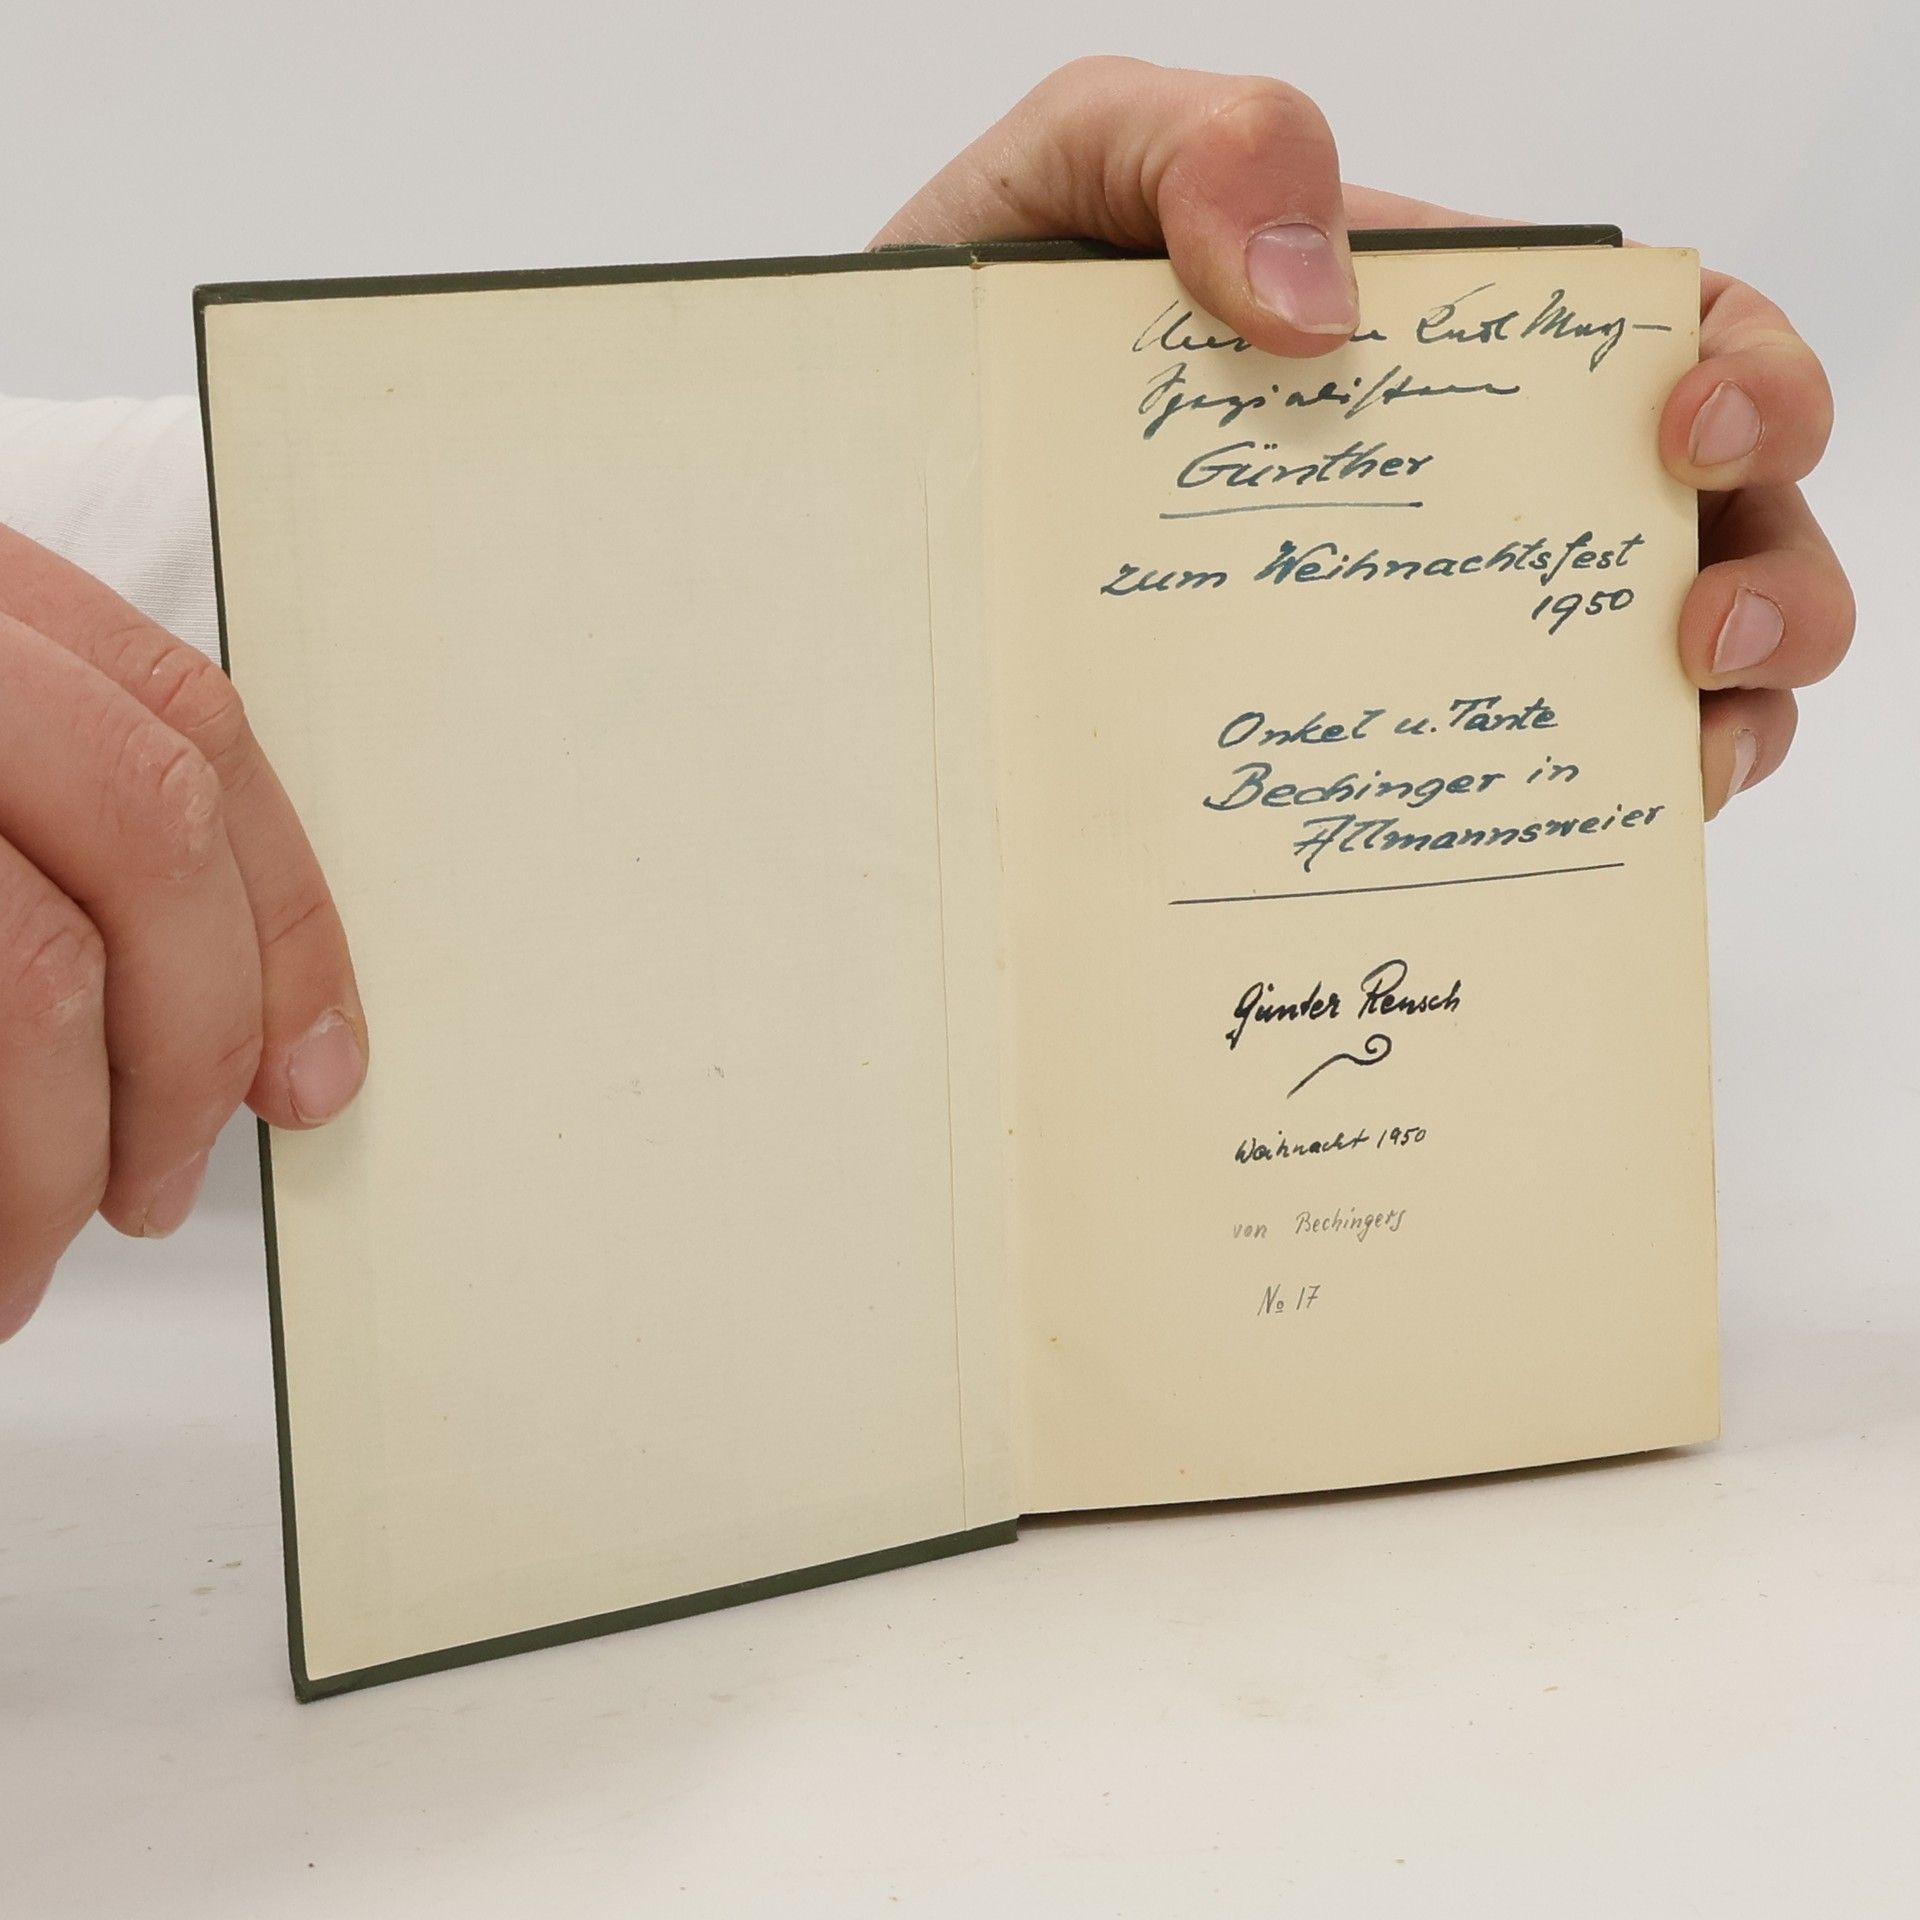 Karl May-
Spezialisten
Günther
zum Weihnachtsfest
1950
Onkel u. Tante
Bechinger in
Allmannsweier
Günter Rensch
Weihnacht 1950
von Bechingers
No 17